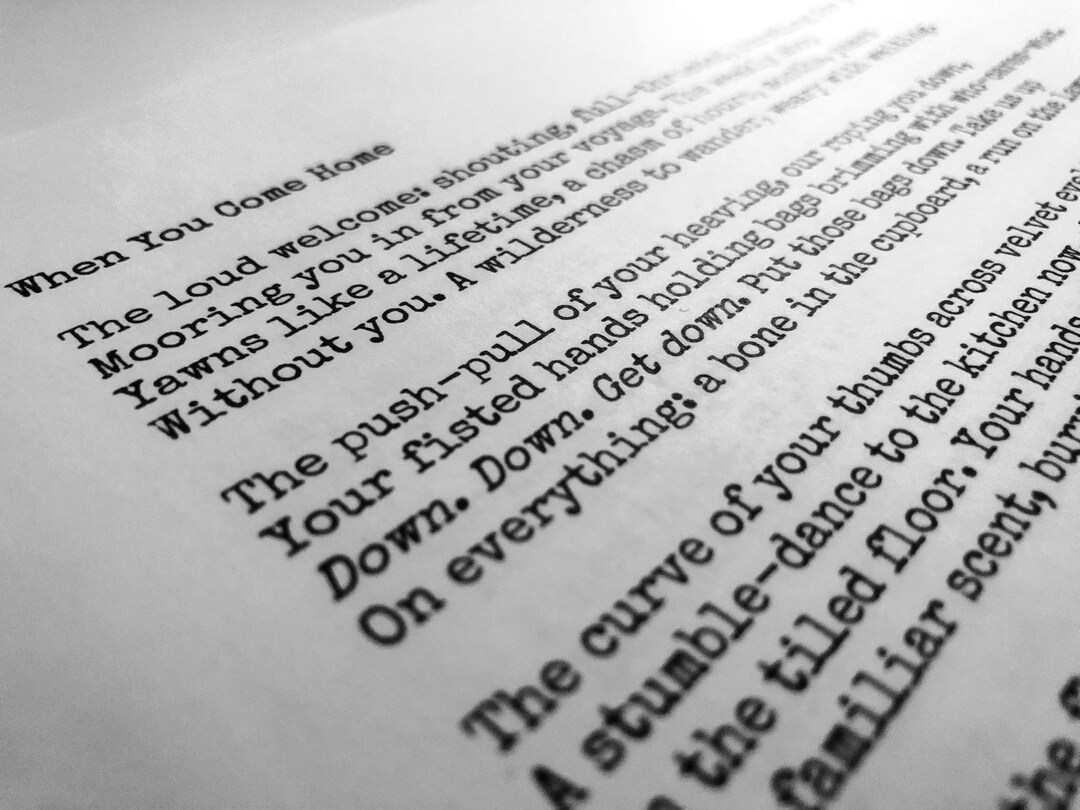 When You Come Home
The loud welcome: shouting, full-
Mooring you in from your voyage. The
Yawns like a lifetime, a chasm of hours,
Without you. A wilderness to wander, weary with
The push-pull of your heaving, our roping you down,
Your fisted hands holding bags brimming with who-
Down. Down. Get down. Put those bags down. Take us up
On everything: a bone in the cupboard, a run on the
The curve of your thumbs across velvet
A stumble-dance to the kitchen now
the tiled floor. Your hands
familiar scent,
the